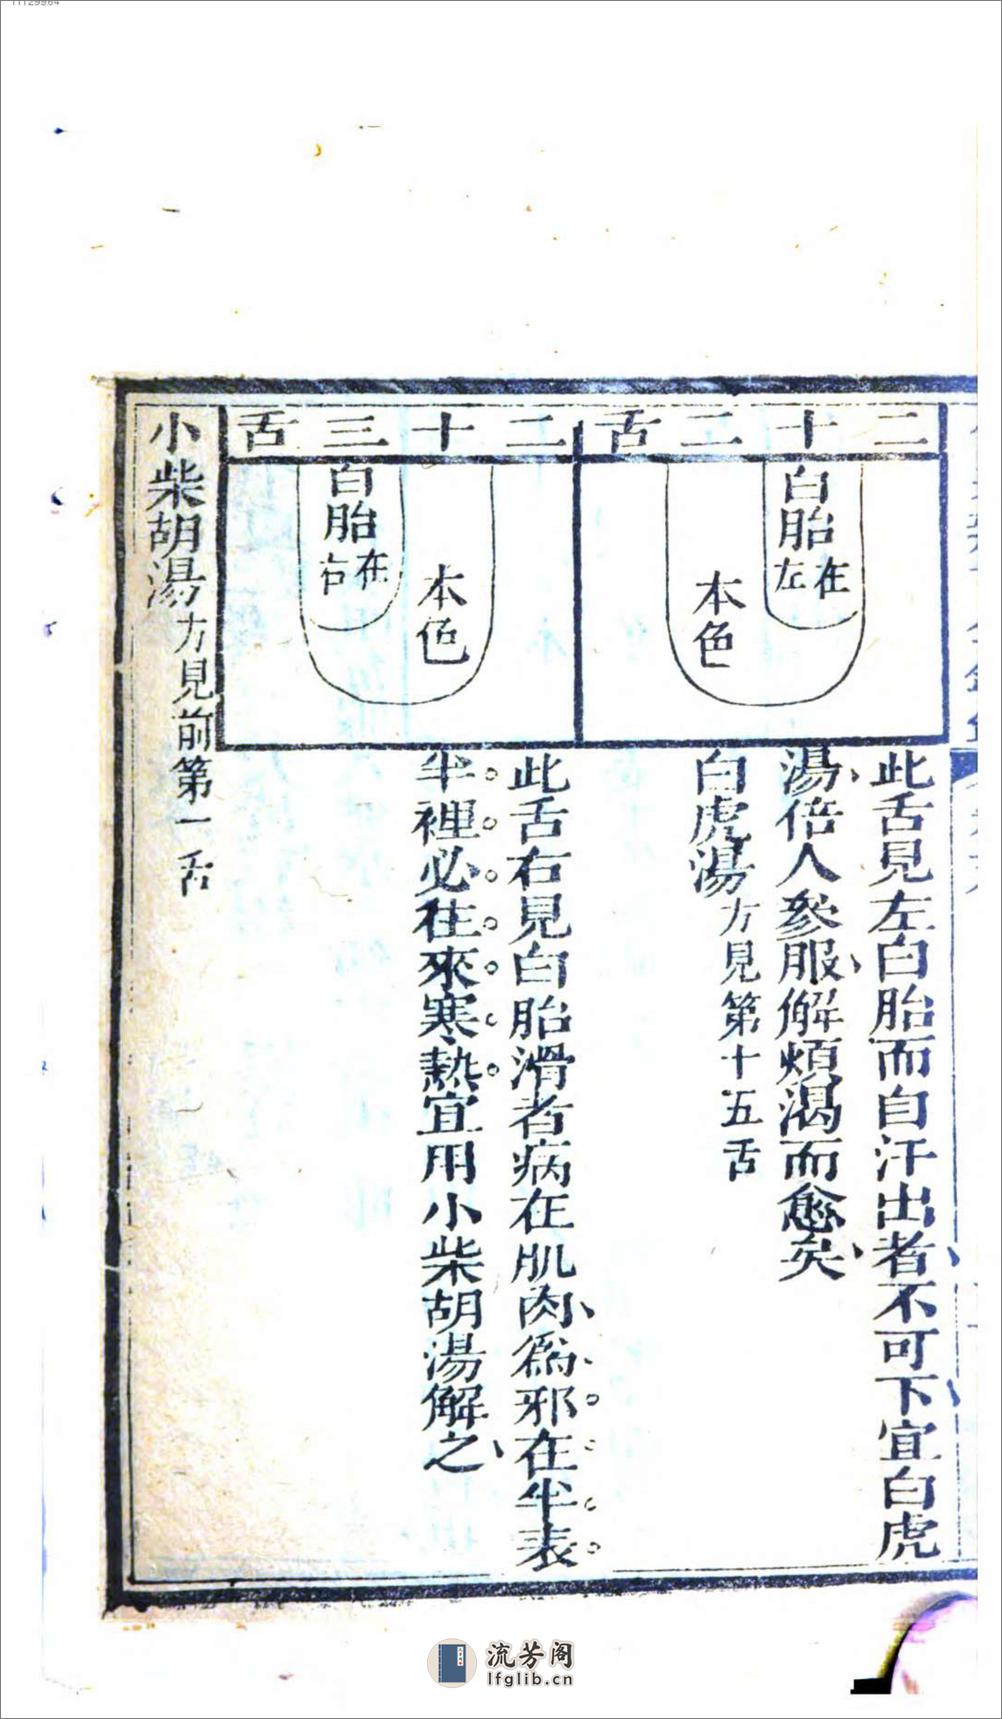 11129964
二十二舌
白胎在左
本色
此舌見左白胎而自汗出者不可下宜白虎
湯倍人參服解煩渴而愈矣
白虎湯方見第十五舌
二十三舌
本色
白胎在右
此舌右見白胎滑者病在肌肉為邪在半表
半裡必往來寒熱宜用小柴胡湯解之
小柴胡湯方見前第一舌
流芳阁
lfglib.cn